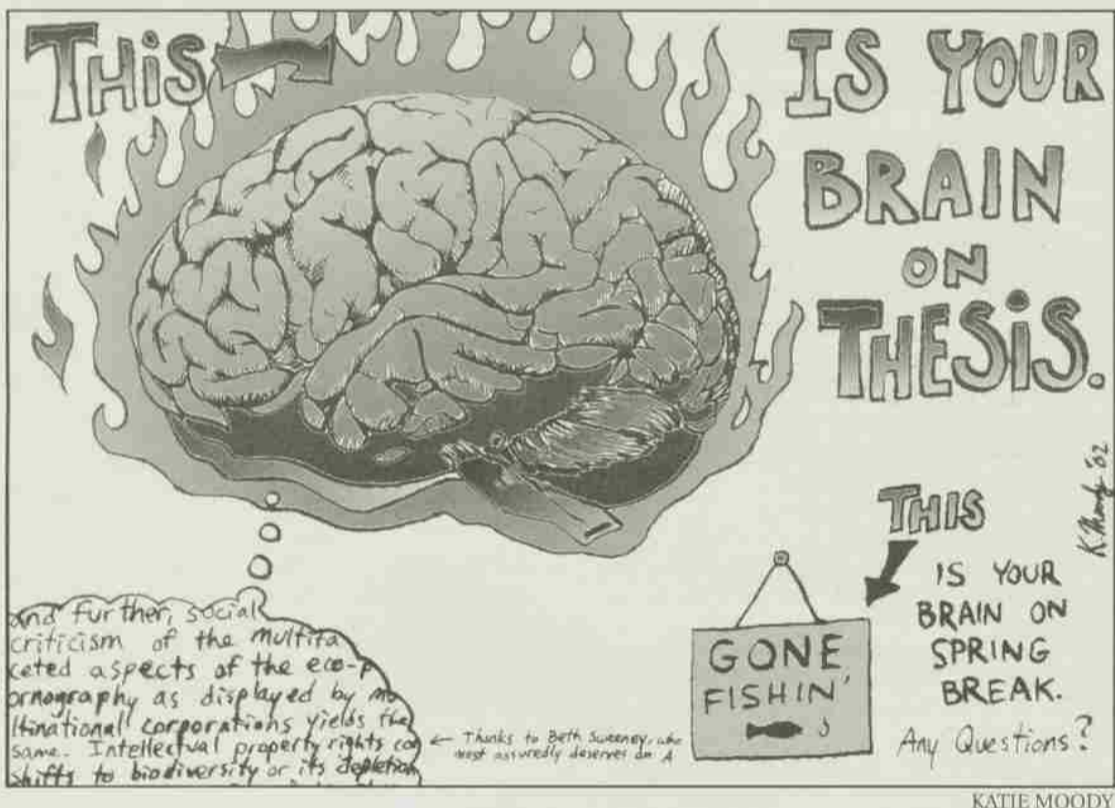 THIS
IS YOUR
BRAIN
ON
THESIS.
and further, social
criticism of the multifa
ceted aspects of the eco-p
ornography as displayed by mu
ltinational corporations yields the
same. Intellectual property rights
shifts to biodiversity or its depletion
← Thanks to Beth Sweeney, who
most assuredly deserves an A
GONE
FISHIN'
THIS
IS YOUR
BRAIN ON
SPRING
BREAK.
Any Questions?
K. Moody '02
KATIE MOODY